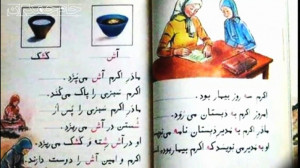 آش
کشک
مادر اکرم آش می‌پزد.
مادر اکرم سبزی را پاک می‌کند.
مادر اکرم سبزی را پس از
شستن در آش
و کشک می‌ریزد.
اکرم و امین آش را دوست دارند.
اکرم سه روز بیمار بود.
امروز اکرم به دبستان می‌رود.
مادر اکرم به مدیر دبستان نامه می‌نویسد.
او به مدیر می‌نویسد که اکرم بیمار بوده است.